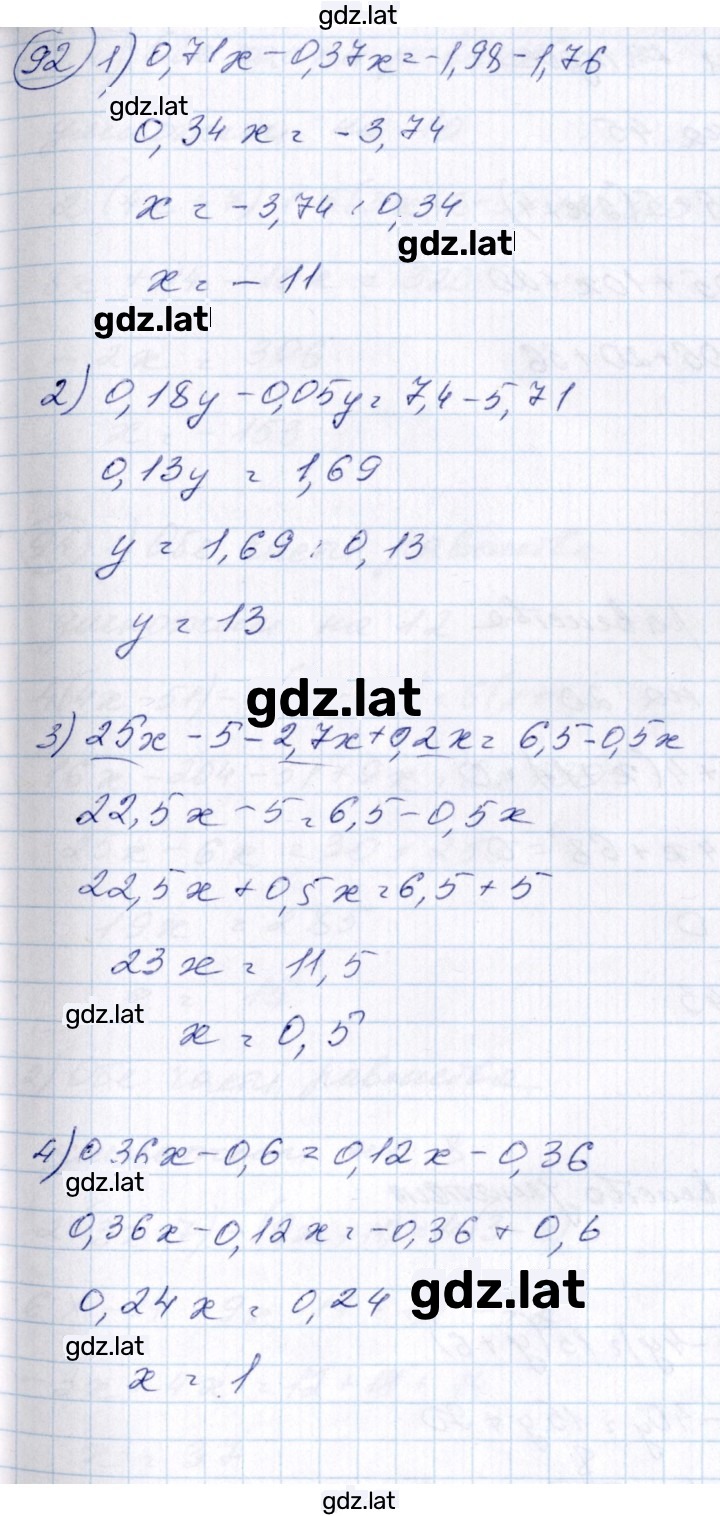 gdz.lat
92) 1) 0,71x - 0,37x = -1,98 - 1,76
gdz.lat
0,34x = -3,74
x = -3,74 : 0,34
gdz.lat
x = -11
gdz.lat
2) 0,18y - 0,05y = 7,4 - 5,71
0,13y = 1,69
y = 1,69 : 0,13
y = 13
gdz.lat
3) 25x - 5 - 2,7x + 0,2x = 6,5 - 0,5x
22,5x - 5 = 6,5 - 0,5x
22,5x + 0,5x = 6,5 + 5
23x = 11,5
gdz.lat
x = 0,5
4) 0,36x - 0,6 = 0,12x - 0,36
gdz.lat
0,36x - 0,12x = -0,36 + 0,6
gdz.lat
0,24x = 0,24
gdz.lat
x = 1
gdz.lat